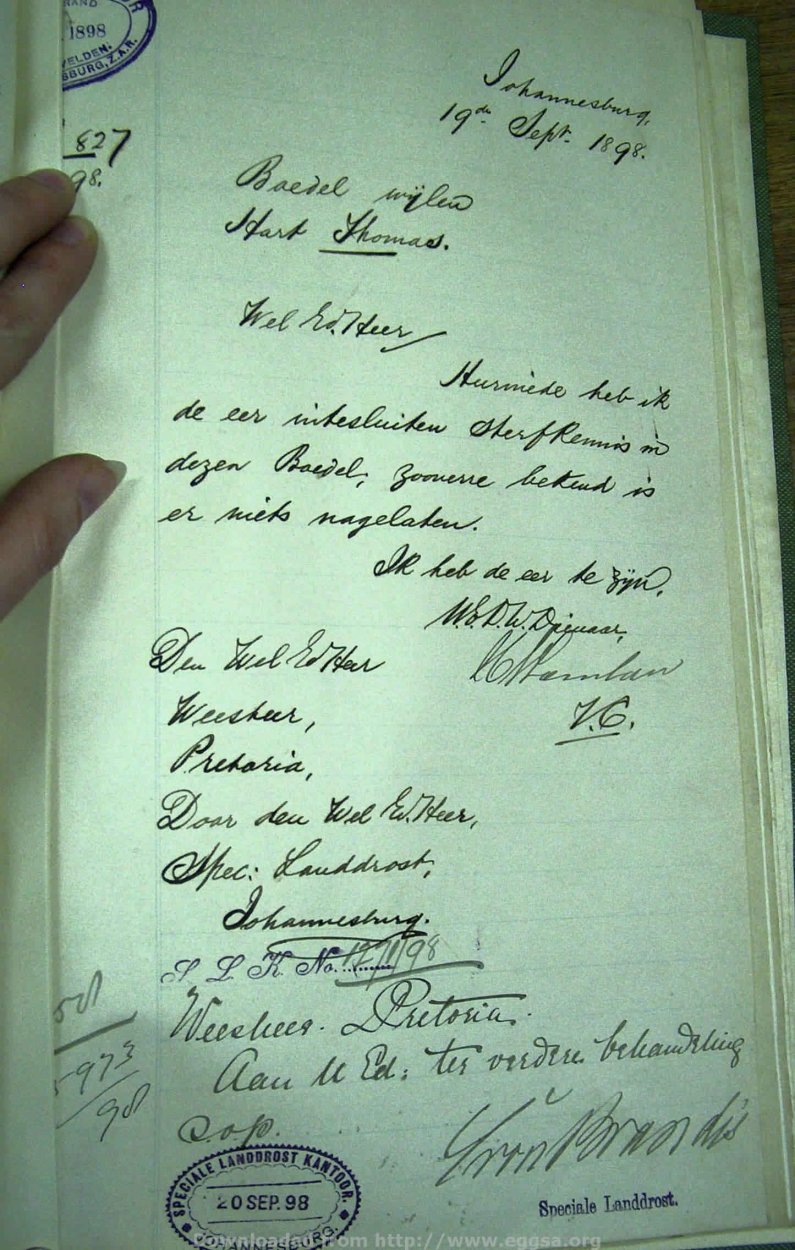 RAND
1898
VELDEN.
SBURG, Z.A.R.
827
98.
Johannesburg,
19de Sept. 1898.
Boedel wijlen
Hart Thomas.
Wel Ed. Heer
Hiermede heb ik
de eer intesluiten Sterfkennis in
dezen Boedel, zooverre bekend is
er niets nagelaten.
Ik heb de eer te zijn,
W.E.D.W. Dienaar,
V.C.
Den Wel Ed Heer
Weesheer,
Pretoria,
Door den Wel Ed. Heer,
Spec: Landdrost,
Johannesburg.
S. L. K. No. /98
Weesheer. Pretoria.
Aan U Ed: ter verdere behandeling
s.o.p.
5973
/98
von Brandis
Speciale Landdrost.
SPECIALE LANDDROST KANTOOR.
20 SEP. 98
JOHANNESBURG.
Downloaded from http://www.eggsa.org